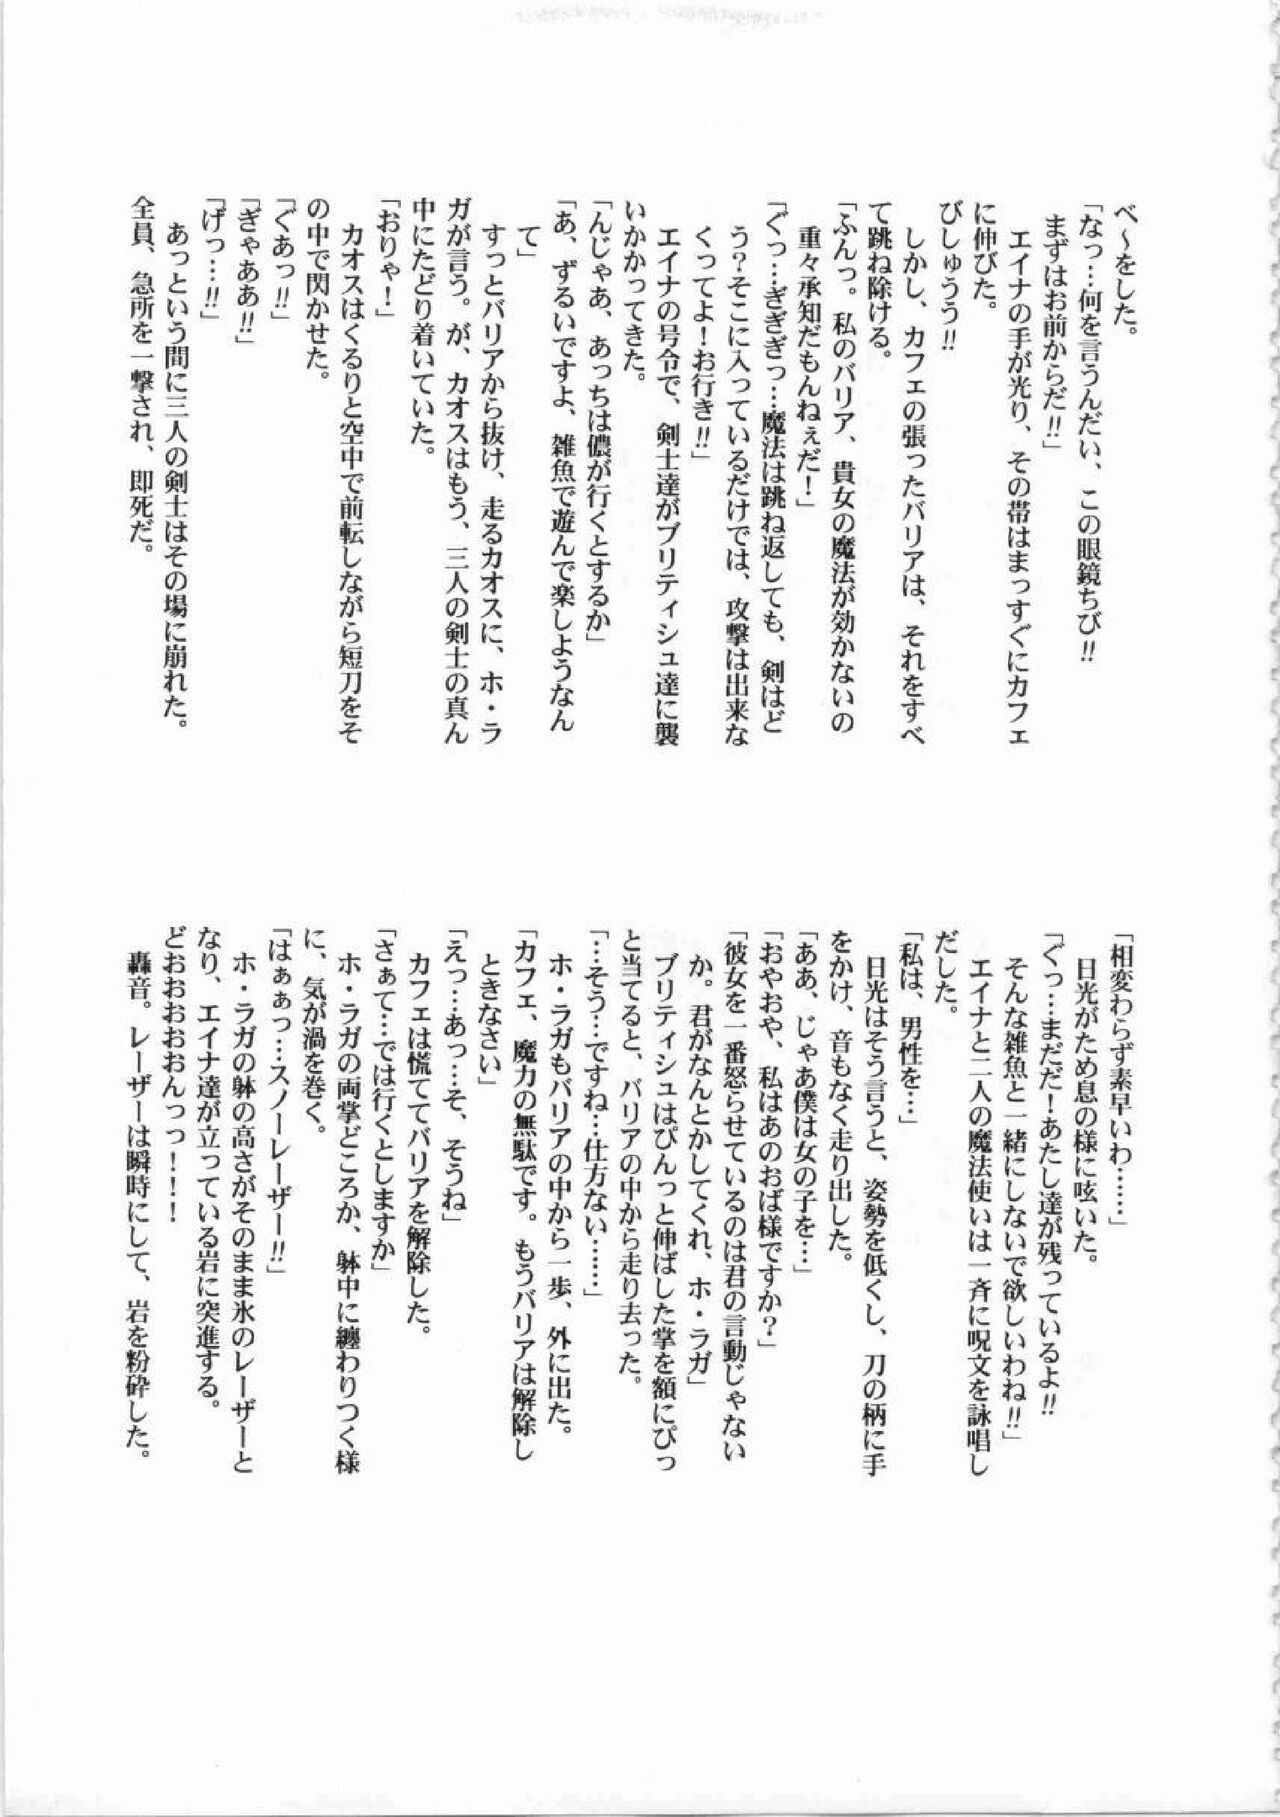 べ〜をした。
「なっ…何を言うんだい、この眼鏡ちび!!
まずはお前からだ!!」
エイナの手が光り、その帯はまっすぐにカフェ
に伸びた。
びしゅうう!!
しかし、カフェの張ったバリアは、それをすべ
て跳ね除ける。
「ふんっ。私のバリア、貴女の魔法が効かないの
重々承知だもんねぇだ！」
「ぐっ…ぎぎぎっ…魔法は跳ね返しても、剣はど
う？そこに入っているだけでは、攻撃は出来な
くってよ！お行き!!」
エイナの号令で、剣士達がブリティシュ達に襲
いかかってきた。
「んじゃあ、あっちは儂が行くとするか」
「あ、ずるいですよ、雑魚で遊んで楽しようなん
て」
すっとバリアから抜け、走るカオスに、ホ・ラ
ガが言う。が、カオスはもう、三人の剣士の真ん
中にたどり着いていた。
「おりゃ！」
カオスはくるりと空中で前転しながら短刀をそ
の中で閃かせた。
「ぐあっ!!」
「ぎゃああ!!」
「げっ…!!」
あっという間に三人の剣士はその場に崩れた。
全員、急所を一撃され、即死だ。
「相変わらず素早いわ……」
日光がため息の様に呟いた。
「ぐっ…まだだ！あたし達が残っているよ!!
そんな雑魚と一緒にしないで欲しいわね!!」
エイナと二人の魔法使いは一斉に呪文を詠唱し
だした。
「私は、男性を…」
日光はそう言うと、姿勢を低くし、刀の柄に手
をかけ、音もなく走り出した。
「ああ、じゃあ僕は女の子を…」
「おやおや、私はあのおば様ですか？」
「彼女を一番怒らせているのは君の言動じゃない
か。君がなんとかしてくれ、ホ・ラガ」
ブリティシュはぴんっと伸ばした掌を額にぴっ
と当てると、バリアの中から走り去った。
「…そう…ですね…仕方ない……」
ホ・ラガもバリアの中から一歩、外に出た。
「カフェ、魔力の無駄です。もうバリアは解除し
ときなさい」
「えっ…あっ…そ、そうね」
カフェは慌ててバリアを解除した。
「さぁて…では行くとしますか」
ホ・ラガの両掌どころか、躰中に纏わりつく様
に、気が渦を巻く。
「はぁぁっ…スノーレーザー!!」
ホ・ラガの躰の高さがそのまま氷のレーザーと
なり、エイナ達が立っている岩に突進する。
どおおおおおんっっ！！！
轟音。レーザーは瞬時にして、岩を粉砕した。